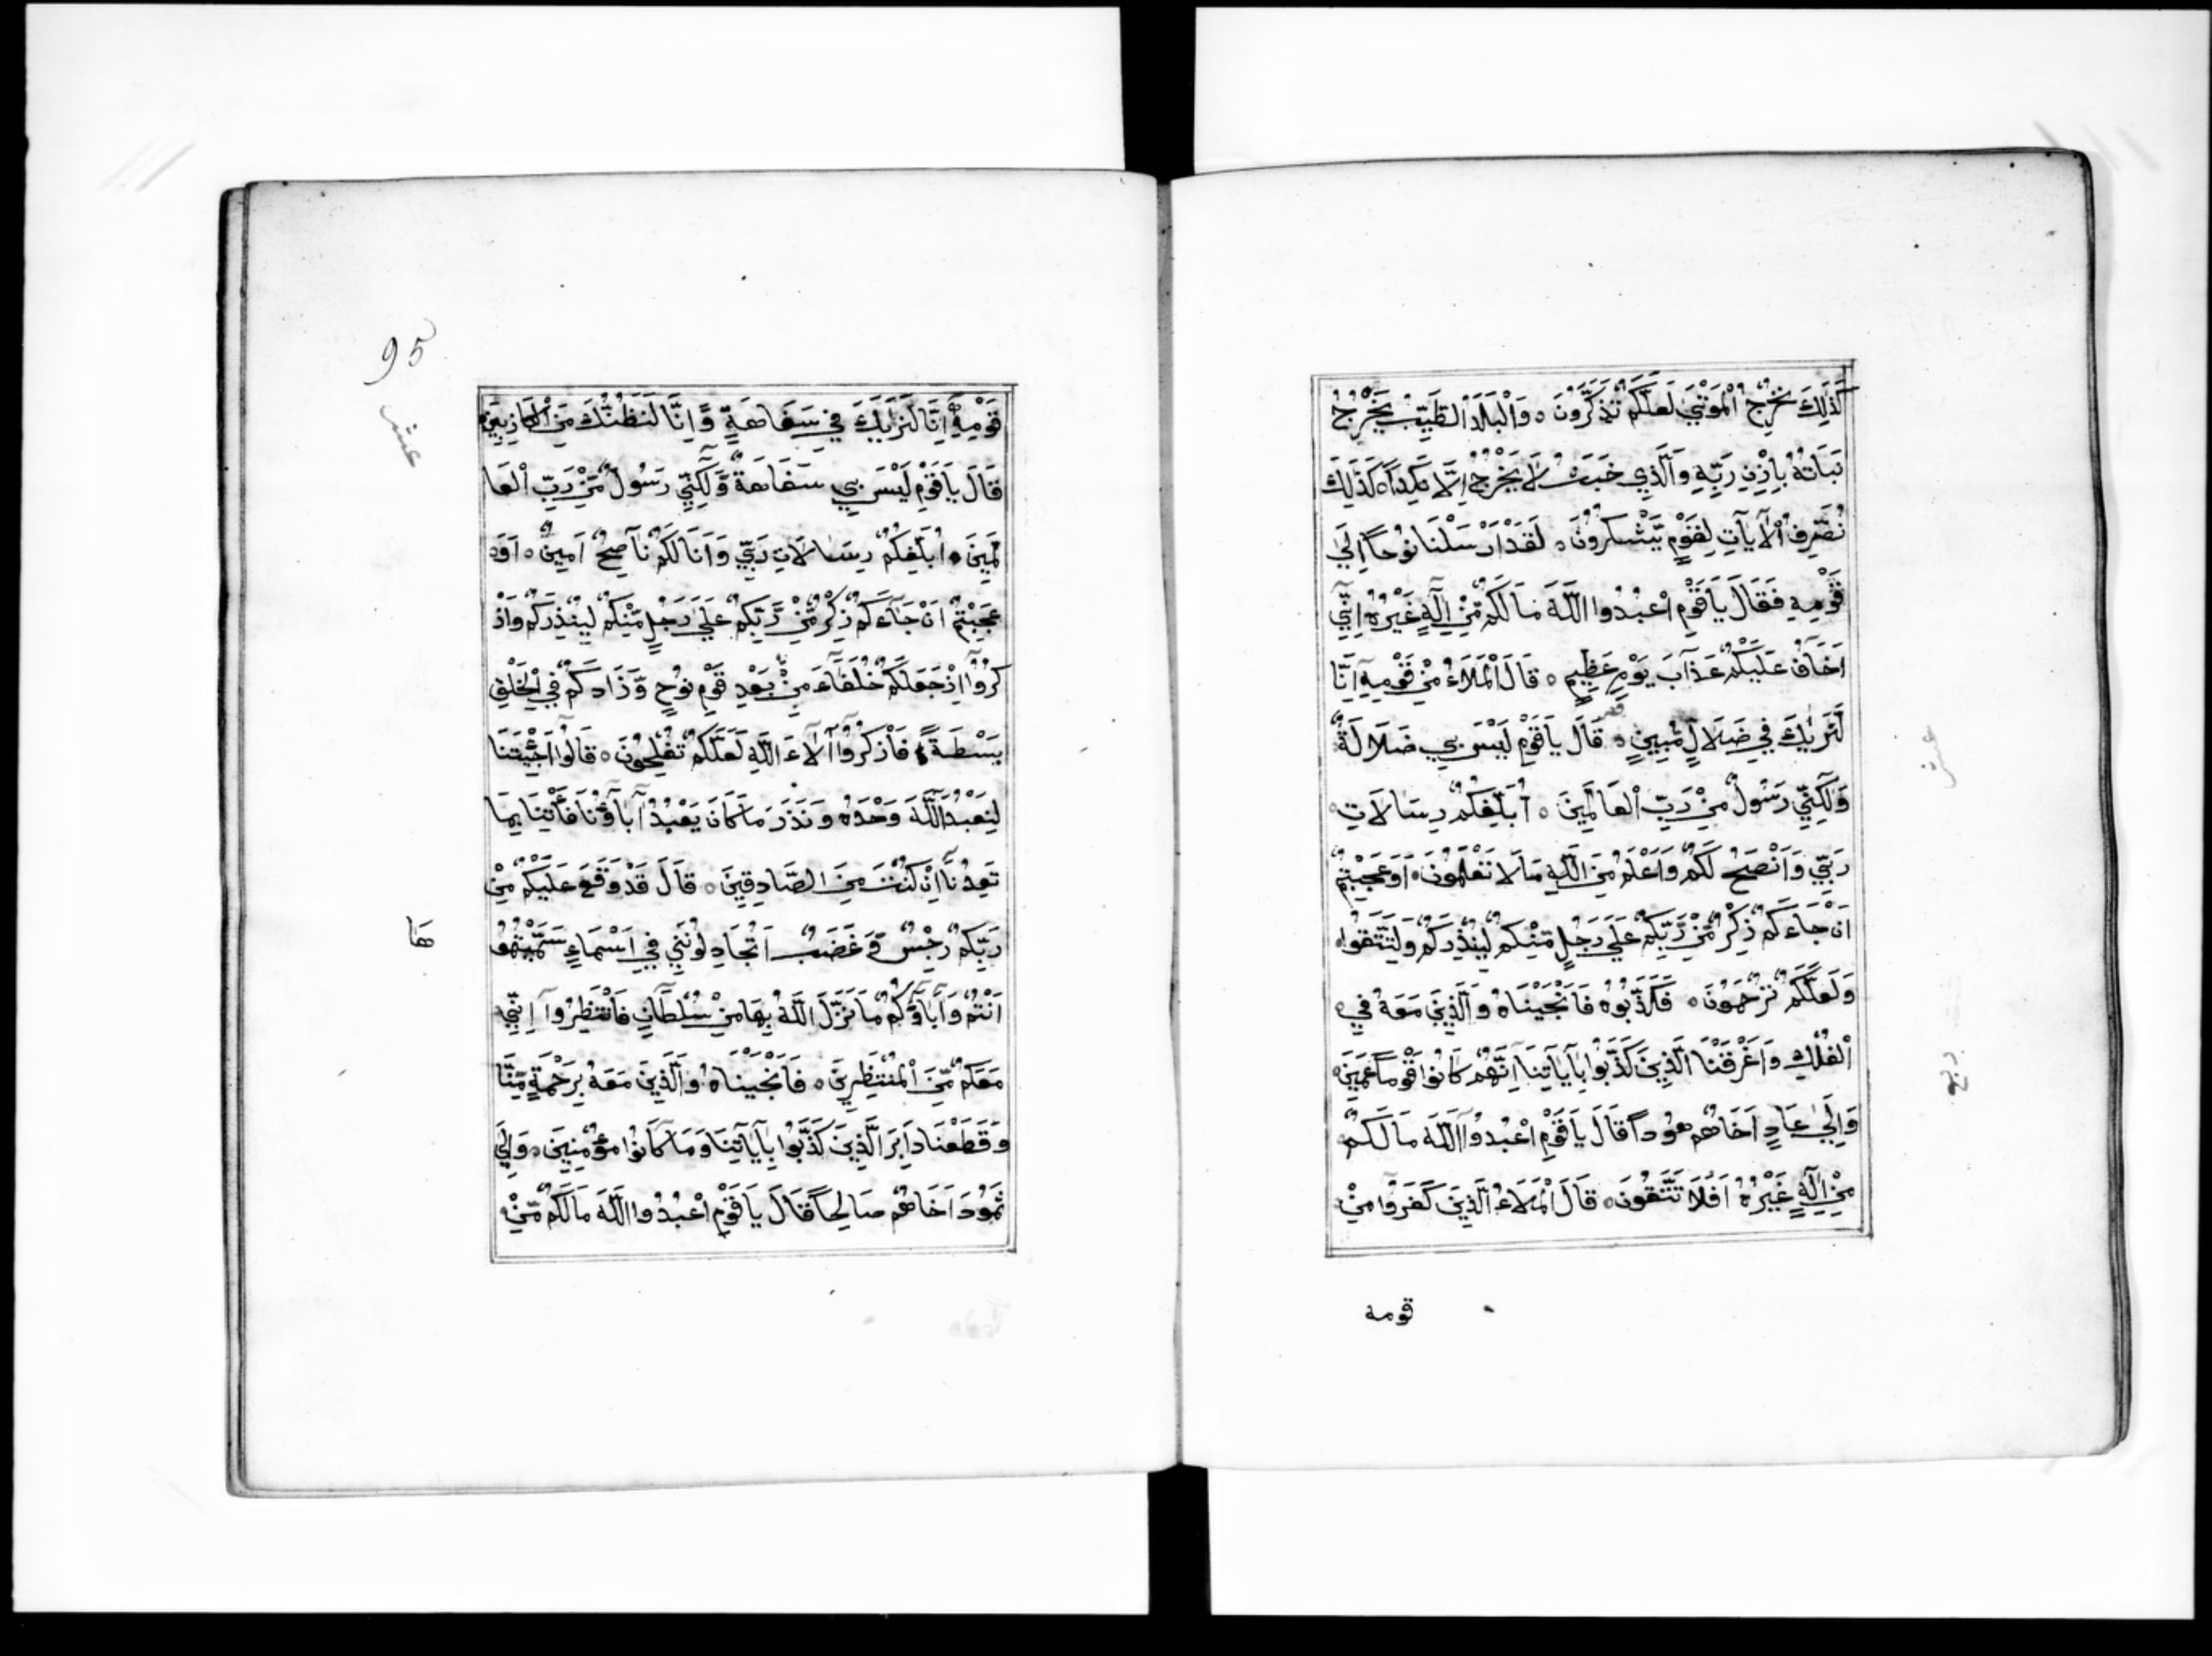 كَذَلِكَ نُخْرِجُ الْمَوْتَي لَعَلَّكُمْ تَذَكَّرُونَ ه وَالْبَلَدُ الطَّيِّبُ يَخْرُجُ
نَبَاتُهُ بِإِذْنِ رَبِّهِ وَالَّذِي خَبَثَ لَا يَخْرُجُ اِلَّا نَكِداً ه كَذَلِكَ
نُصَرِّفُ الْآيَاتِ لِقَوْمٍ يَّشْكُرُونَ ه لَقَدْ اَرْسَلْنَا نُوْحاً اِلَي
قَوْمِهِ فَقَالَ يَاقَوْمِ اعْبُدُوا اللَّهَ مَالَكُمْ مِّنْ اِلَهٍ غَيْرُهُ اِنِّي
اَخَافُ عَلَيْكُمْ عَذَابَ يَوْمٍ عَظِيمٍ ه قَالَ الْمَلَاءُ مِنْ قَوْمِهِ اِنَّا
لَنَرَيكَ فِي ضَلَالٍ مُّبِينٍ ه قَالَ يَاقَوْمِ لَيْسَ بِي ضَلَالَةٌ
وَلَكِنِّي رَسُولٌ مِنْ رَبِّ الْعَالَمِينَ ه اُبَلِّغُكُمْ رِسَالَاتِ
رَبِّي وَاَنْصَحُ لَكُمْ وَاَعْلَمُ مِنَ اللَّهِ مَالَا تَعْلَمُونَ ه اَوَعَجِبْتُمْ
اَنْ جَاءَكُمْ ذِكْرٌ مِّنْ رَّبِّكُمْ عَلَي رَجُلٍ مِّنْكُمْ لِيُنْذِرَكُمْ وَلِتَتَّقُوا
وَلَعَلَّكُمْ تُرْحَمُونَ ه فَكَذَّبُوهُ فَاَنْجَيْنَاهُ وَالَّذِينَ مَعَهُ فِي
الْفُلْكِ وَاَغْرَقْنَا الَّذِينَ كَذَّبُوا بِآيَاتِنَا اِنَّهُمْ كَانُوا قَوْماً عَمِينَ ه
وَاِلَي عَادٍ اَخَاهُمْ هُوداً قَالَ يَاقَوْمِ اعْبُدُوا اللَّهَ مَالَكُمْ
مِنْ اِلَهٍ غَيْرُهُ اَفَلَا تَتَّقُونَ ه قَالَ الْمَلَاءُ الَّذِينَ كَفَرُوا مِنْ
قومه
عشر
ربع
95
عشر
قَوْمِهِ اِنَّا لَنَرَيكَ فِي سَفَاهَةٍ وَّاِنَّا لَنَظُنُّكَ مِنَ الْكَاذِبِينَ ه
قَالَ يَاقَوْمِ لَيْسَ بِي سَفَاهَةٌ وَّلَكِنِّي رَسُولٌ مِّنْ رَبِّ الْعَا
لَمِينَ ه اُبَلِّغُكُمْ رِسَالَاتِ رَبِّي وَاَنَا لَكُمْ نَاصِحٌ اَمِينٌ ه اَوَ
عَجِبْتُمْ اَنْ جَاءَكُمْ ذِكْرٌ مِّنْ رَّبِّكُمْ عَلَي رَجُلٍ مِّنْكُمْ لِيُنْذِرَكُمْ وَاذْ
كُرُوا اِذْ جَعَلَكُمْ خُلَفَاءَ مِنْ بَعْدِ قَوْمِ نُوْحٍ وَّزَادَكُمْ فِي الْخَلْقِ
بَسْطَةً فَاذْكُرُوا آلَاءَ اللَّهِ لَعَلَّكُمْ تُفْلِحُونَ ه قَالُوا اَجِئْتَنَا
لِنَعْبُدَ اللَّهَ وَحْدَهُ وَنَذَرَ مَا كَانَ يَعْبُدُ آبَاؤُنَا فَأْتِنَا بِمَا
تَعِدُنَا اِنْ كُنْتَ مِنَ الصَّادِقِينَ ه قَالَ قَدْ وَقَعَ عَلَيْكُمْ مِنْ
رَبِّكُمْ رِجْسٌ وَّغَضَبٌ اَتُجَادِلُونَنِي فِي اَسْمَاءٍ سَمَّيْتُمُو
ها
اَنْتُمْ وَآبَاؤُكُمْ مَا نَزَّلَ اللَّهُ بِهَا مِنْ سُلْطَانٍ فَانْتَظِرُوا اِنِّي
مَعَكُمْ مِّنَ الْمُنْتَظِرِينَ ه فَاَنْجَيْنَاهُ وَالَّذِينَ مَعَهُ بِرَحْمَةٍ مِّنَّا
وَقَطَعْنَا دَابِرَ الَّذِينَ كَذَّبُوا بِآيَاتِنَا وَمَا كَانُوا مُؤْمِنِينَ ه وَاِلَي
ثَمُودَ اَخَاهُمْ صَالِحاً قَالَ يَاقَوْمِ اعْبُدُوا اللَّهَ مَالَكُمْ مِّنْ